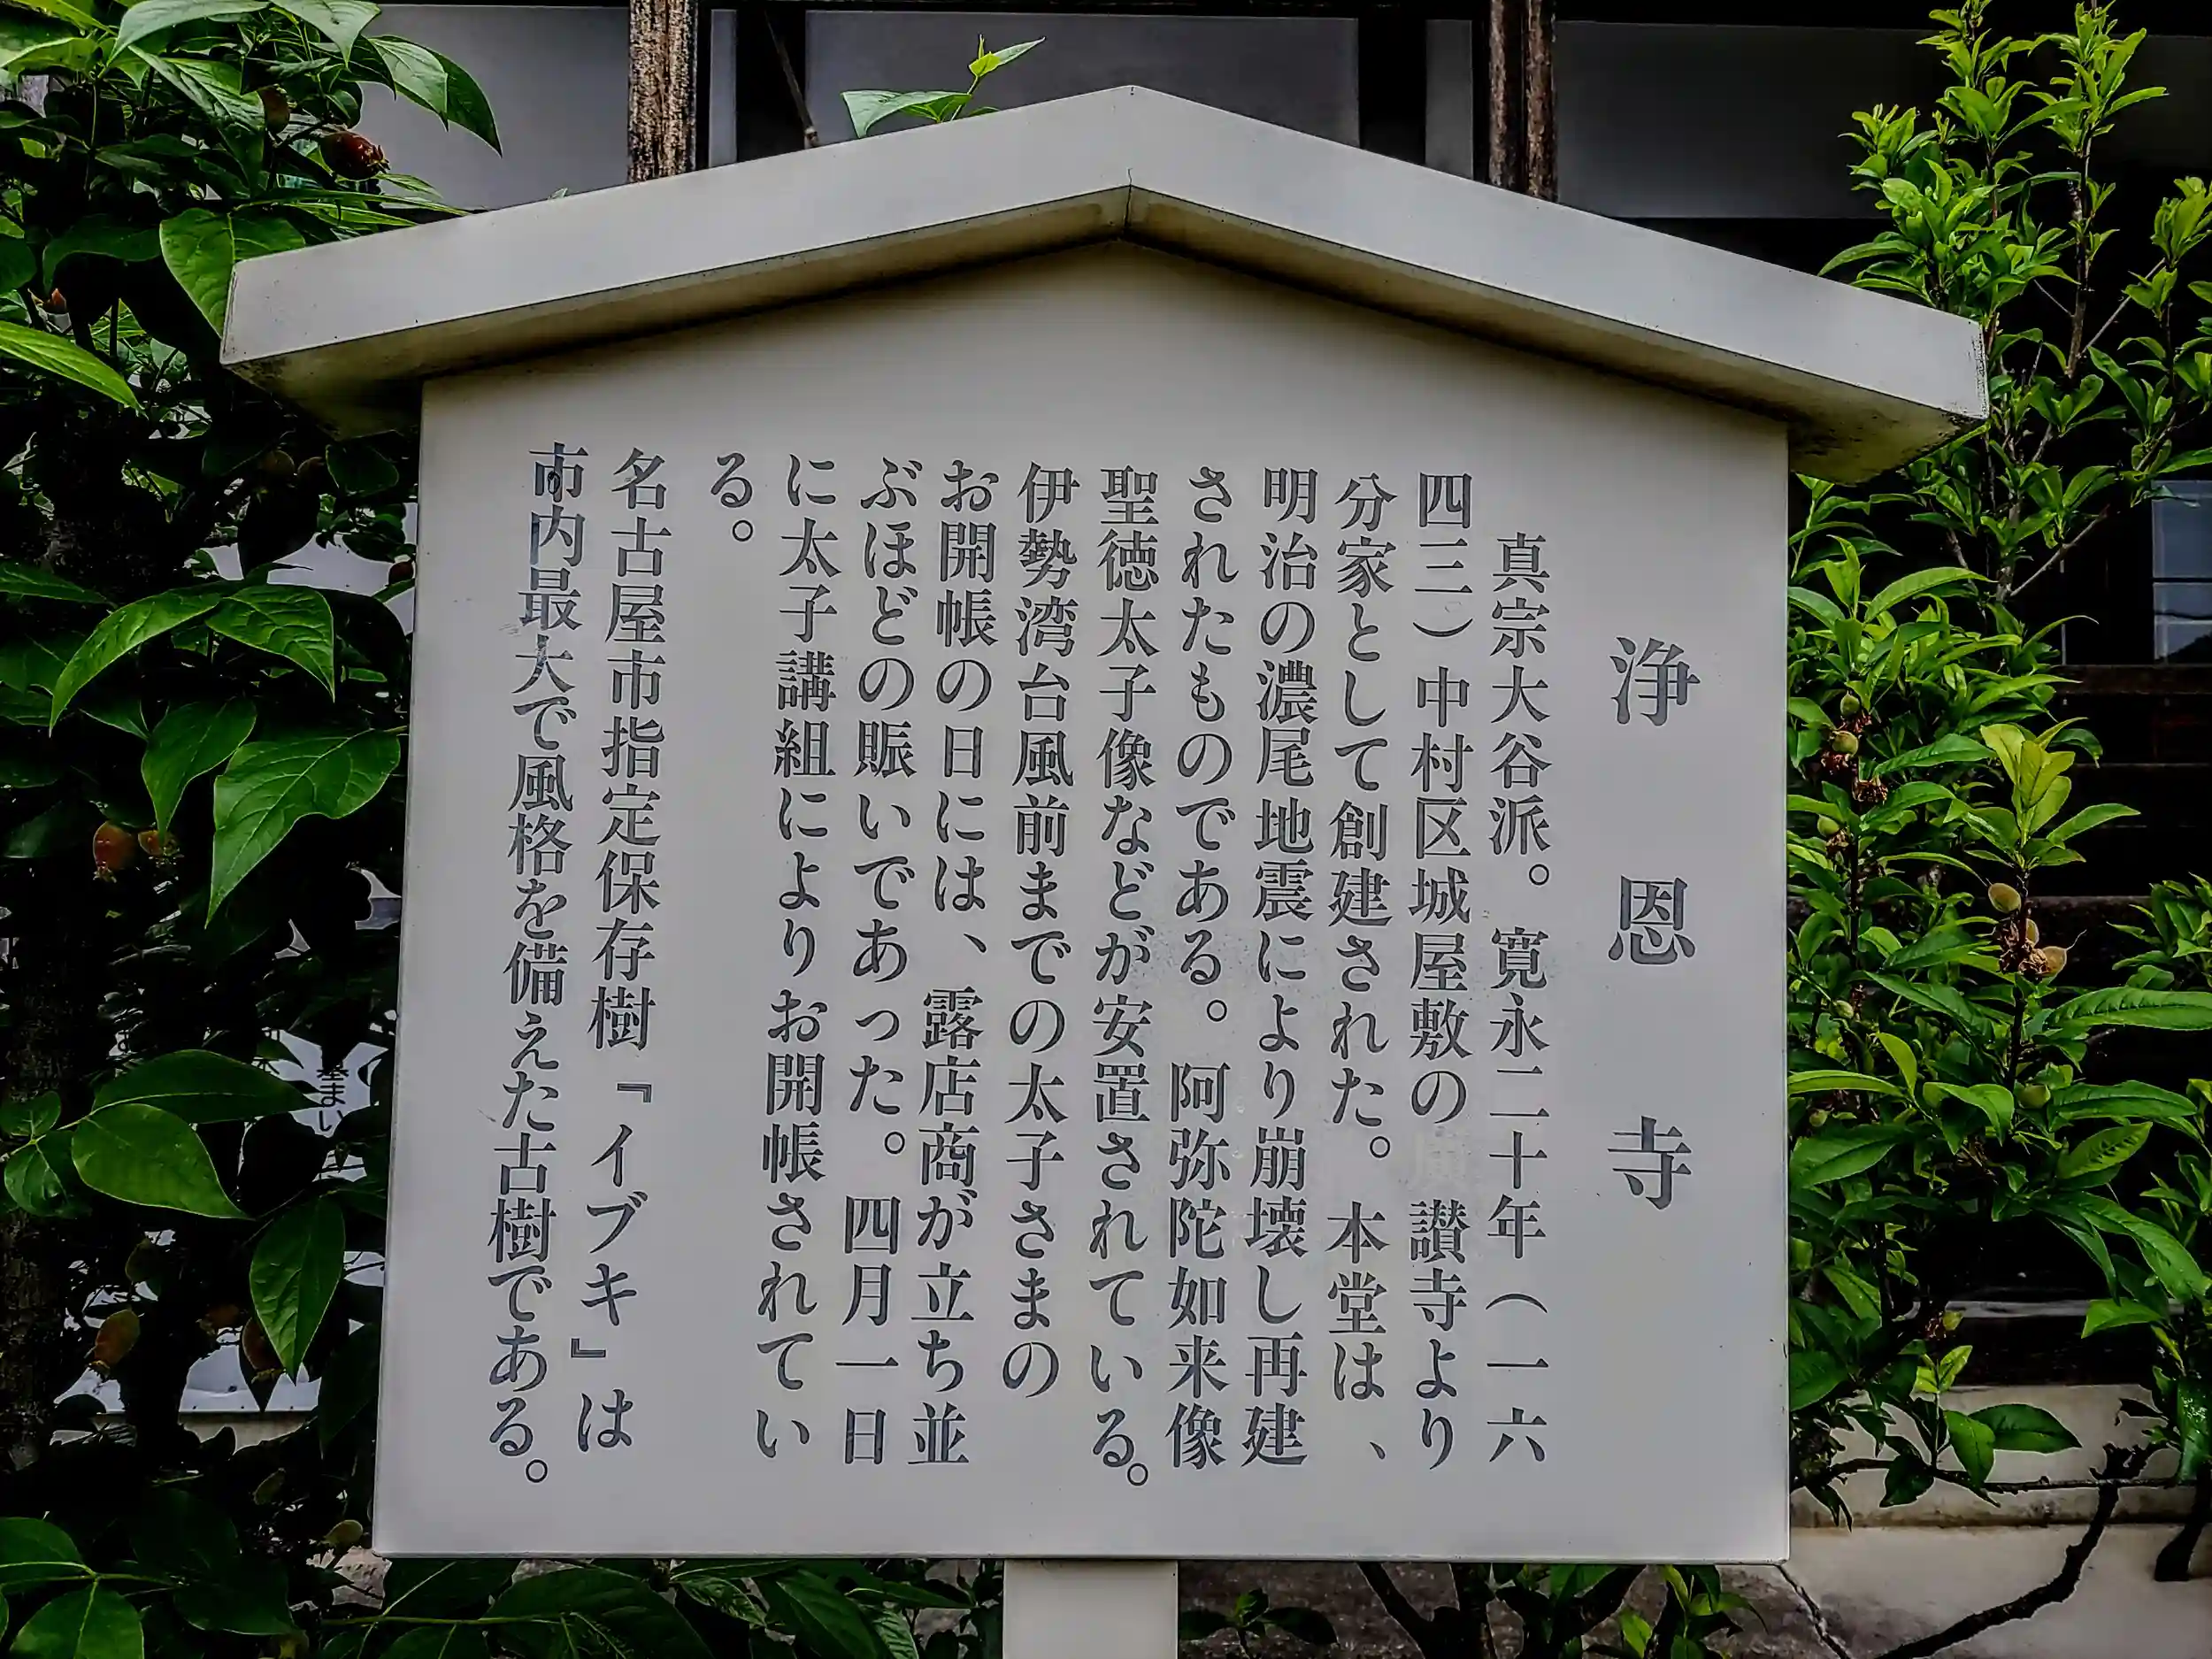 浄恩寺
真宗大谷派。寛永二十年（一六
四三）中村区城屋敷の　讃寺より
分家として創建された。本堂は、
明治の濃尾地震により崩壊し再建
されたものである。阿弥陀如来像
聖徳太子像などが安置されている。
伊勢湾台風前までの太子さまの
お開帳の日には、露店商が立ち並
ぶほどの賑いであった。四月一日
に太子講組によりお開帳されてい
る。
名古屋市指定保存樹『イブキ』は
市内最大で風格を備えた古樹である。